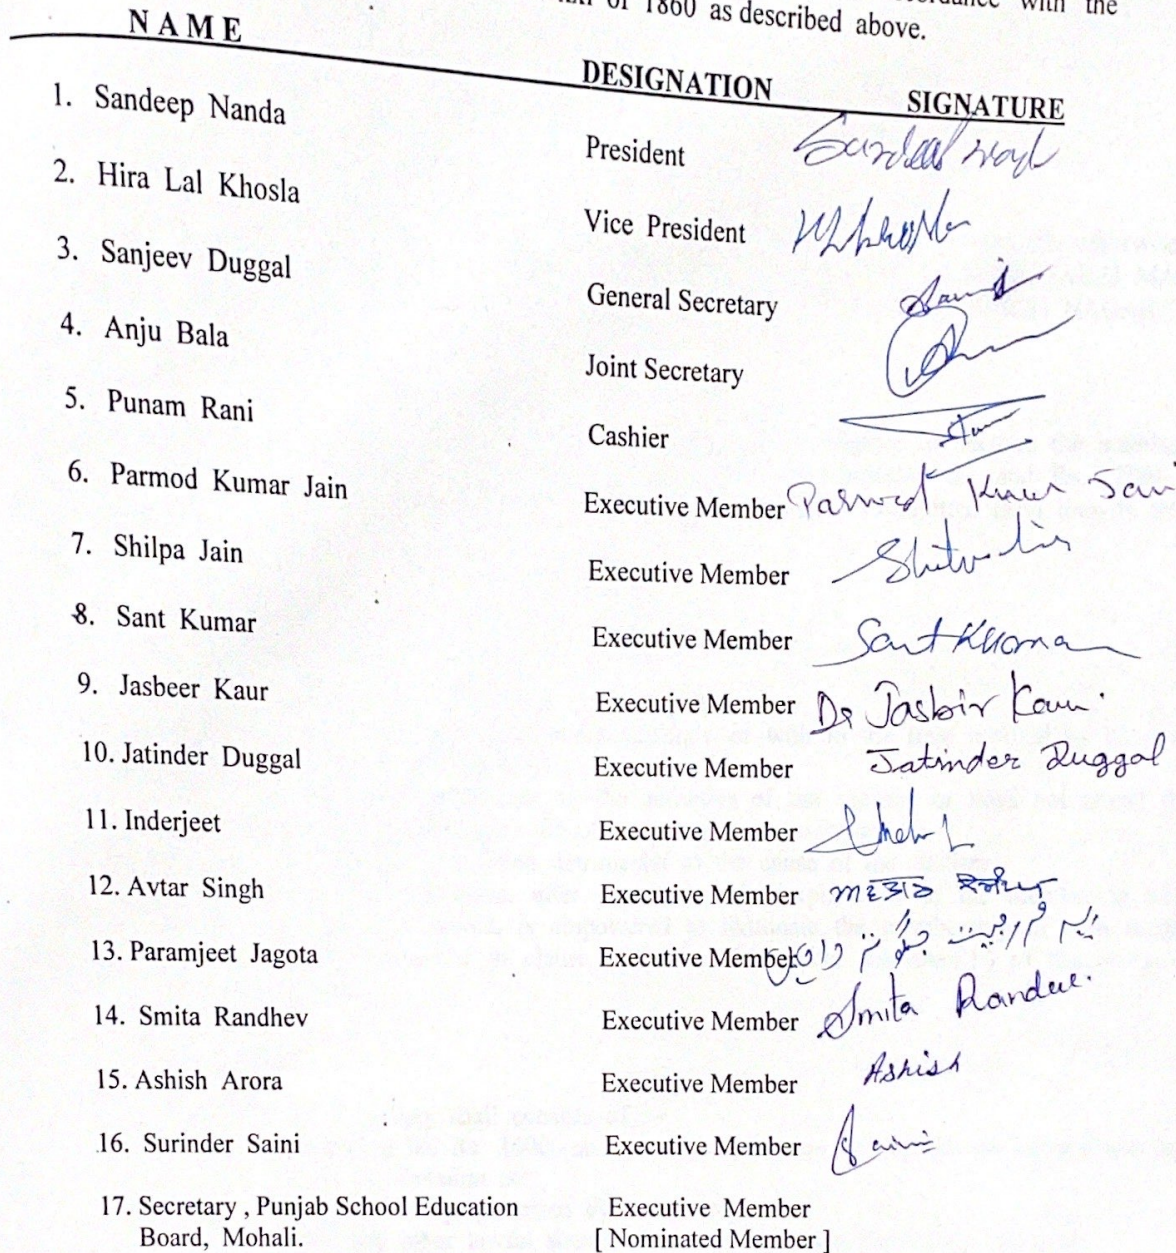 of 1860 as described above. with the
NAME DESIGNATION SIGNATURE
1. Sandeep Nanda President
2. Hira Lal Khosla Vice President
3. Sanjeev Duggal General Secretary
4. Anju Bala Joint Secretary
5. Punam Rani Cashier
6. Parmod Kumar Jain Executive Member Parmod Kumar Jain
7. Shilpa Jain Executive Member
8. Sant Kumar Executive Member Sant Kumar
9. Jasbeer Kaur Executive Member Dr Jasbir Kaur
10. Jatinder Duggal Executive Member Jatinder Duggal
11. Inderjeet Executive Member
12. Avtar Singh Executive Member
13. Paramjeet Jagota Executive Member
14. Smita Randhev Executive Member Smita Randev.
15. Ashish Arora Executive Member Ashish
16. Surinder Saini Executive Member Saini
17. Secretary , Punjab School Education Executive Member
Board, Mohali. [ Nominated Member ]